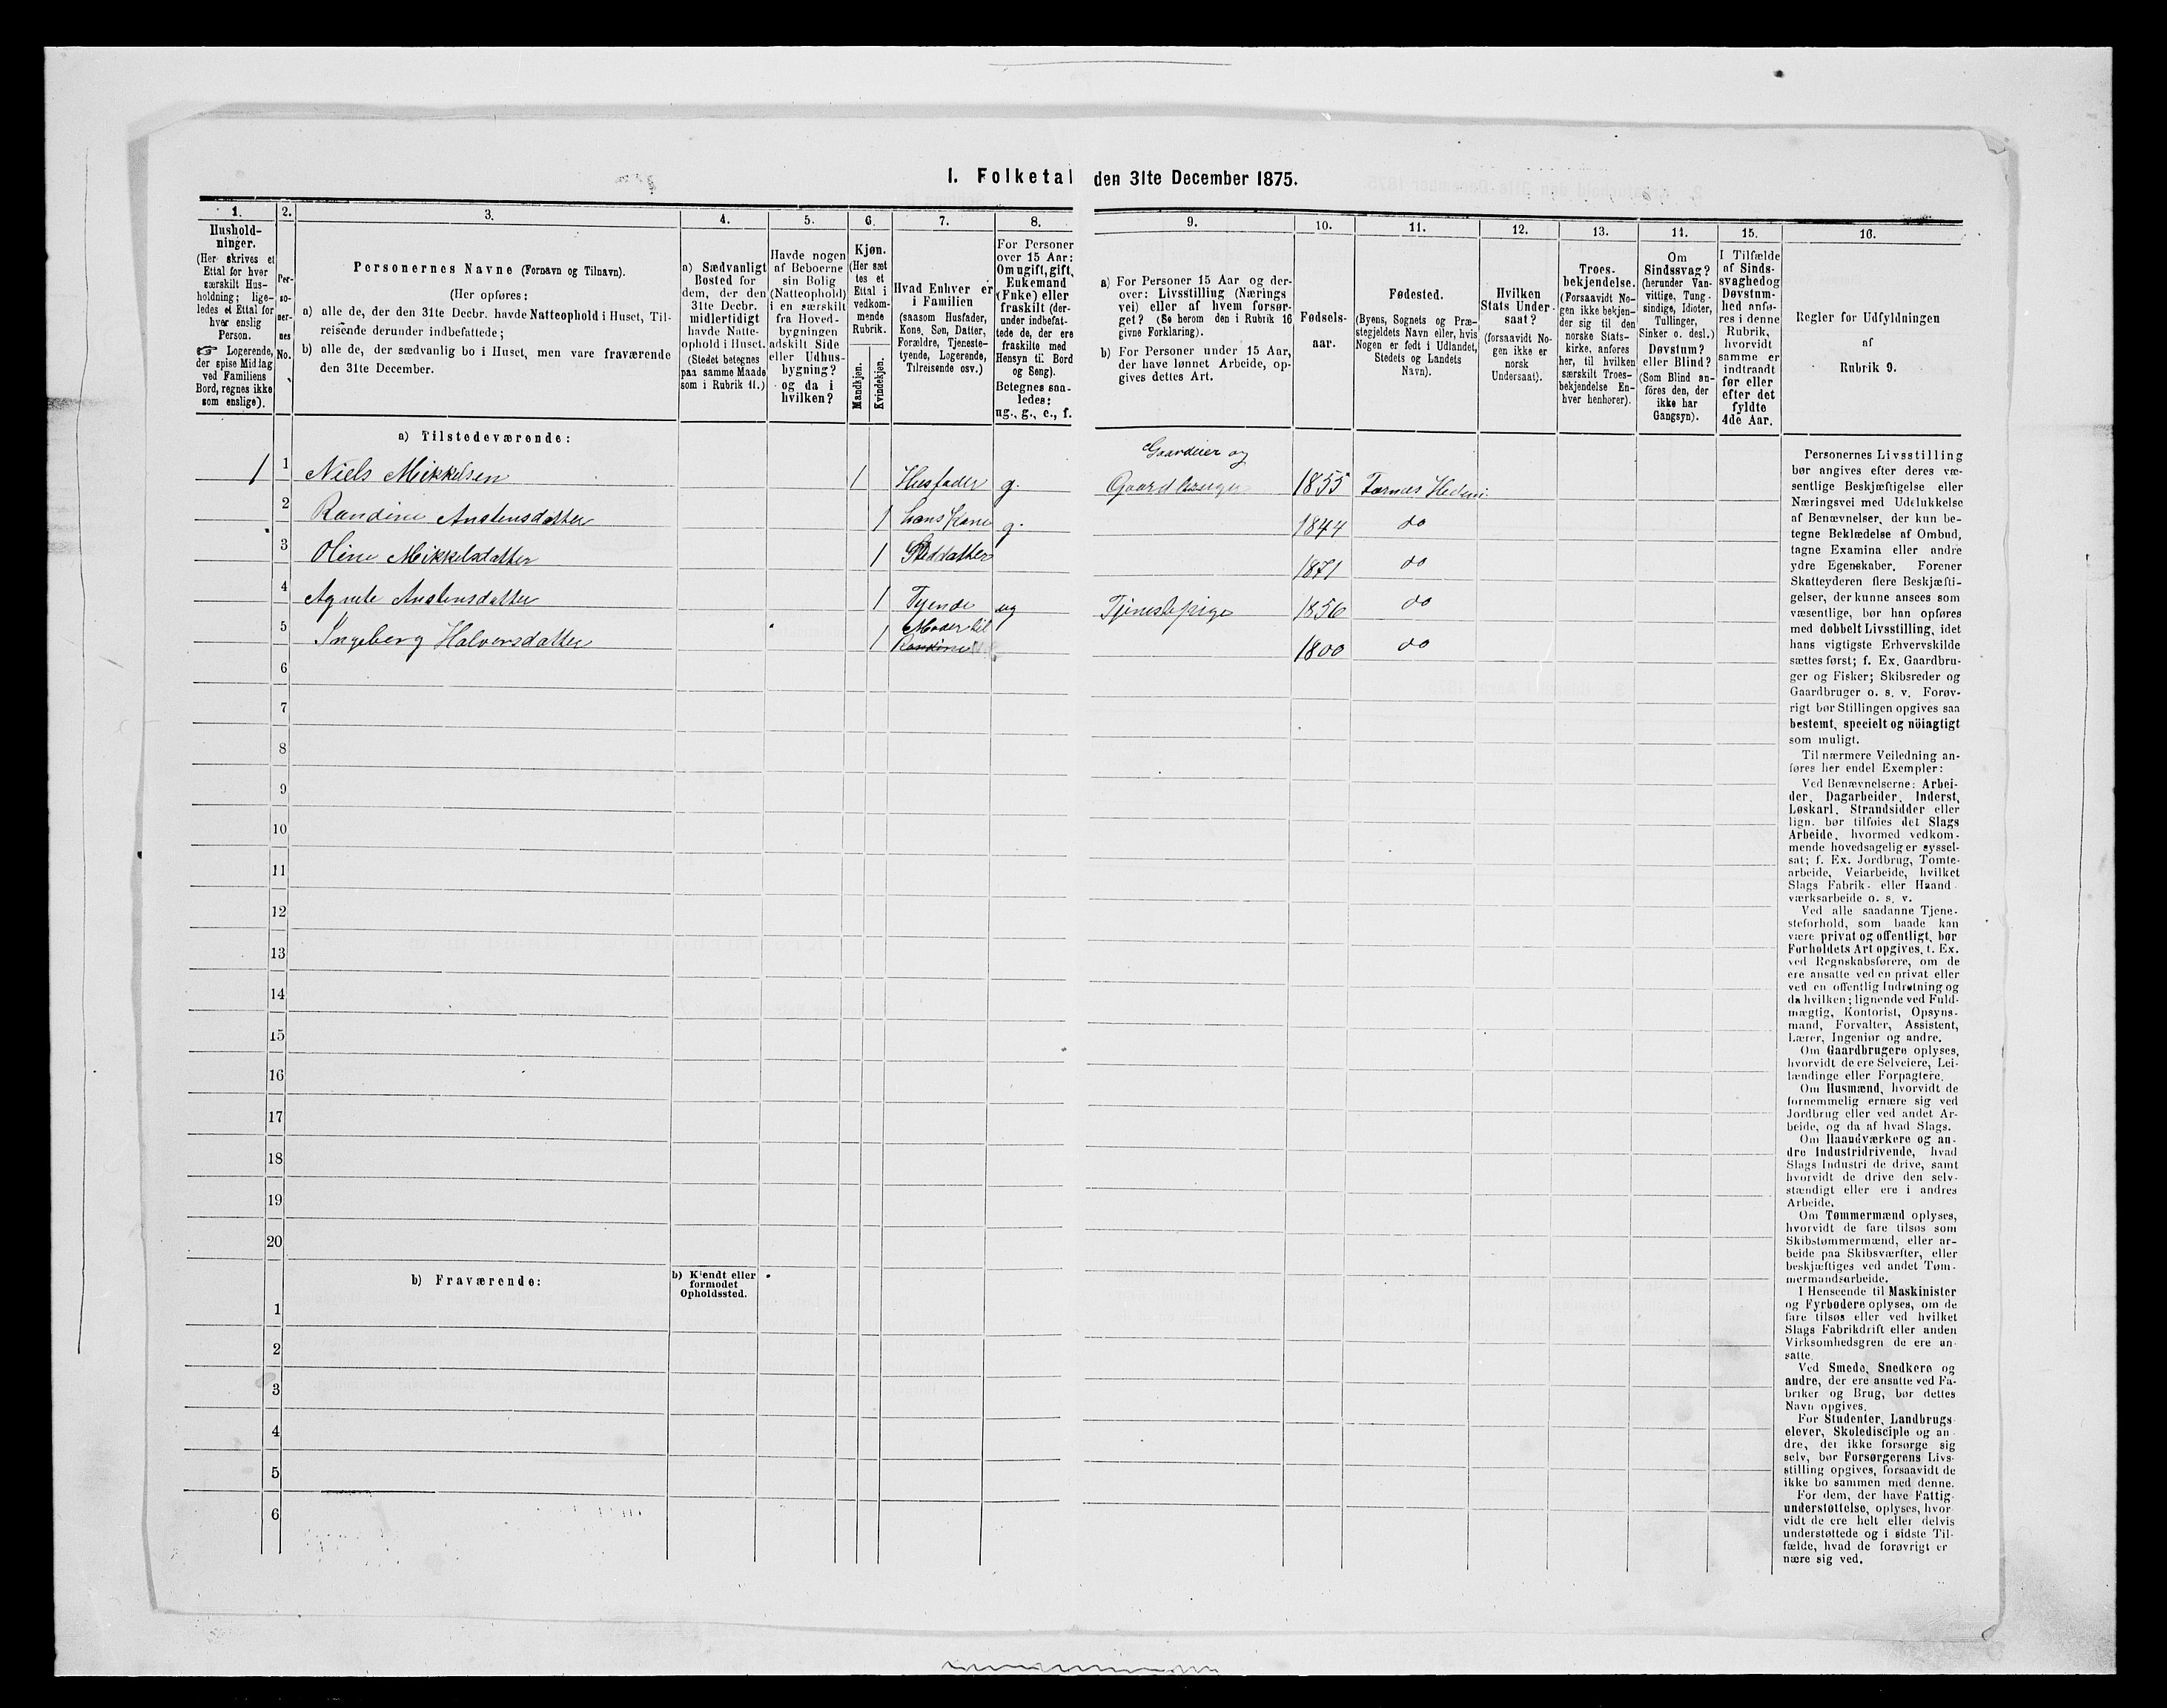 I. Folketal den 31te December 1875.
1. 2. 3. 4. 5. 6. 7. 8. 9. 10. 11. 12. 13. 14. 15. 16.
Hushold-
ninger.
(Her skrives et
Ettal for hver
særskilt Hus-
holdning; lige-
ledes et Ettal for
hver enslig
Person.
☞ Logerende,
der spise Middag
ved Familiens
Bord, regnes ikke
som enslige).
Per-
so-
ner-
nes
No.
Personernes Navne (Fornavn og Tilnavn).
(Her opføres:
a) alle de, der den 31te Decbr. havde Natteophold i Huset, Til-
reisende derunder indbefattede;
b) alle de, der sædvanlig bo i Huset, men vare fraværende
den 31te December.
a) Sædvanligt
Bosted for
dem, der den
31te Decbr.
midlertidigt
havde Natte-
ophold i Huset.
(Stedet betegnes
paa samme Maade
som i Rubrik 11.)
Havde nogen
af Beboerne
sin Bolig
(Natteophold)
i en særskilt
fra Hoved-
bygningen
adskilt Side
eller Udhus-
bygning?
og da i
hvilken?
Kjøn.
(Her sæt
tes et
Ettal i
vedkom-
mende
Rubrik.
Mandkjøn.
Kvindekjøn.
Hvad Enhver er
i Familien
(saasom Husfader,
Kone, Søn, Datter,
Forældre, Tjeneste-
tyende, Logerende,
Tilreisende osv.)
For Personer
over 15 Aar:
Om ugift, gift,
Enkemand
(Enke) eller
fraskilt (der-
under indbefat-
tede de, der ere
fraskilte med
Hensyn til Bord
og Seng).
Betegnes saa-
ledes:
ug., g., e., f.
a) For Personer 15 Aar og der-
over: Livsstilling (Nærings
vei) eller af hvem forsør-
get? (Se herom den i Rubrik 16
givne Forklaring).
b) For Personer under 15 Aar,
der have lønnet Arbeide, op-
gives dettes Art.
Fødsels-
aar.
Fødested.
(Byens, Sognets og Præ-
stegjeldets Navn eller, hvis
Nogen er født i Udlandet,
Stedets og Landets
Navn).
Hvilken
Stats Under-
saat?
(forsaavidt No-
gen ikke er
norsk
Undersaat).
Troes-
bekjendelse.
(Forsaavidt No-
gen ikke bekjen-
der sig til den
norske Stats-
kirke, anføres
her, til hvilken
særskilt Troes-
bekjendelse En-
hver henhører).
Om
Sindssvag?
(herunder Van-
vittige, Tung-
sindige, Idioter,
Tullinger,
Sinker o. desl.)
Døvstum?
eller Blind?
(Som Blind an-
føres den, der
ikke har
Gangsyn).
I Tilfælde
af Sinds-
svaghed og
Døvstum-
hed anfø-
res i denne
Rubrik,
hvorvidt
samme er
indtraadt
før eller
efter det
fyldte
4de Aar.
Regler for Udfyldningen
af
Rubrik 9.
a) Tilstedeværende:
Gaardeier og
1 1 Niels Mikkelsen 1 Husfader g. Gaardbruger 1855
2 Randine Anstensdatter 1 hans Kone g. 1844 do
3 Oline Mikkelsdatter 1 Steddatter 1871 do
4 Agnete Anstensdatter 1 Tyende ug Tjenestepige 1856 do
5 Ingeberg Halvorsdatter 1 Moder til Randine 1800 do
6
7
8
9
10
11
12
13
14
15
16
17
18
19
20
b) Fraværende:
b) Kjendt eller
formodet
Opholdssted.
1
2
3
4
5
6
Personernes Livsstilling
bør angives efter deres væ-
sentlige Beskjæftigelse eller
Næringsvei med Udelukkelse
af Benævnelser, der kun be-
tegne Beklædelse af Ombud,
tagne Examina eller andre
ydre Egenskaber. Forener
Skatteyderen flere Beskjæfti-
gelser, der kunne ansees som
væsentlige, bør han opføres
med dobbelt Livsstilling, idet
hans vigtigste Erhvervskilde
sættes først; f. Ex. Gaardbru-
ger og Fisker; Skibsreder og
Gaardbruger o. s. v. Forøv-
rigt bør Stillingen opgives saa
bestemt, specielt og nöiagtigt
som muligt.
Til nærmere Veiledning an-
føres her endel Exempler:
Ved Benævnelserne: Arbei-
der, Dagarbeider, Inderst,
Løskarl, Strandsidder eller
lign. bør tilføies det Slags
Arbeide, hvormed vedkom-
mende hovedsagelig er syssel-
sat; f. Ex. Jordbrug, Tomte-
arbeide, Veiarbeide, hvilket
Slags Fabrik- eller Haand-
værksarbeide o. s. v.
Ved alle saadanne Tjene-
steforhold, som baade kan
være privat og offentligt, bør
Forholdets Art opgives, t. Ex.
ved Regnskabsførere, om de
ere ansatte ved en privat eller
ved en offentlig Indretning og
da hvilken; lignende ved Fuld-
mægtig, Kontorist, Opsyns-
mand, Forvalter, Assistent,
Lærer, Ingeniør og andre.
Om Gaardbrugere oplyses,
hvorvidt de ere Selveiere, Lei-
lændinge eller Forpagtere.
Om Husmænd, hvorvidt de
fornemmelig ernære sig ved
Jordbrug eller ved andet Ar-
beide, og da af hvad Slags.
Om Haandværkere og an-
dre Industridrivende, hvad
Slags Industri de drive, samt
hvorvidt de drive den selv-
stændigt eller ere i andres
Arbeide.
Om Tømmermænd oplyses,
hvorvidt de fare tilsøs som
Skibstømmermænd, eller ar-
beide paa Skibsværfter, eller
beskjæftiges ved andet Tøm-
mermandsarbeide.
I Henseende til Maskinister
og Fyrbødere oplyses, om de
fare tilsøs eller ved hvilket
Slags Fabrikdrift eller anden
Virksomhedsgren de ere an-
satte.
Ved Smede, Snedkere og
andre, der ere ansatte ved Fa-
briker og Brug, bør dettes
Navn opgives.
For Studenter, Landbrugs-
elever, Skoledisciple og an-
dre, der ikke forsørge sig
selv, bør Forsørgerens Livs-
stilling opgives, forsaavidt de
ikke bo sammen med denne.
For dem, der have Fattig-
understøttelse, oplyses, hvor-
vidt de ere helt eller delvis
understøttede og i sidste Til-
fælde, hvad de forøvrigt er
nære sig ved.